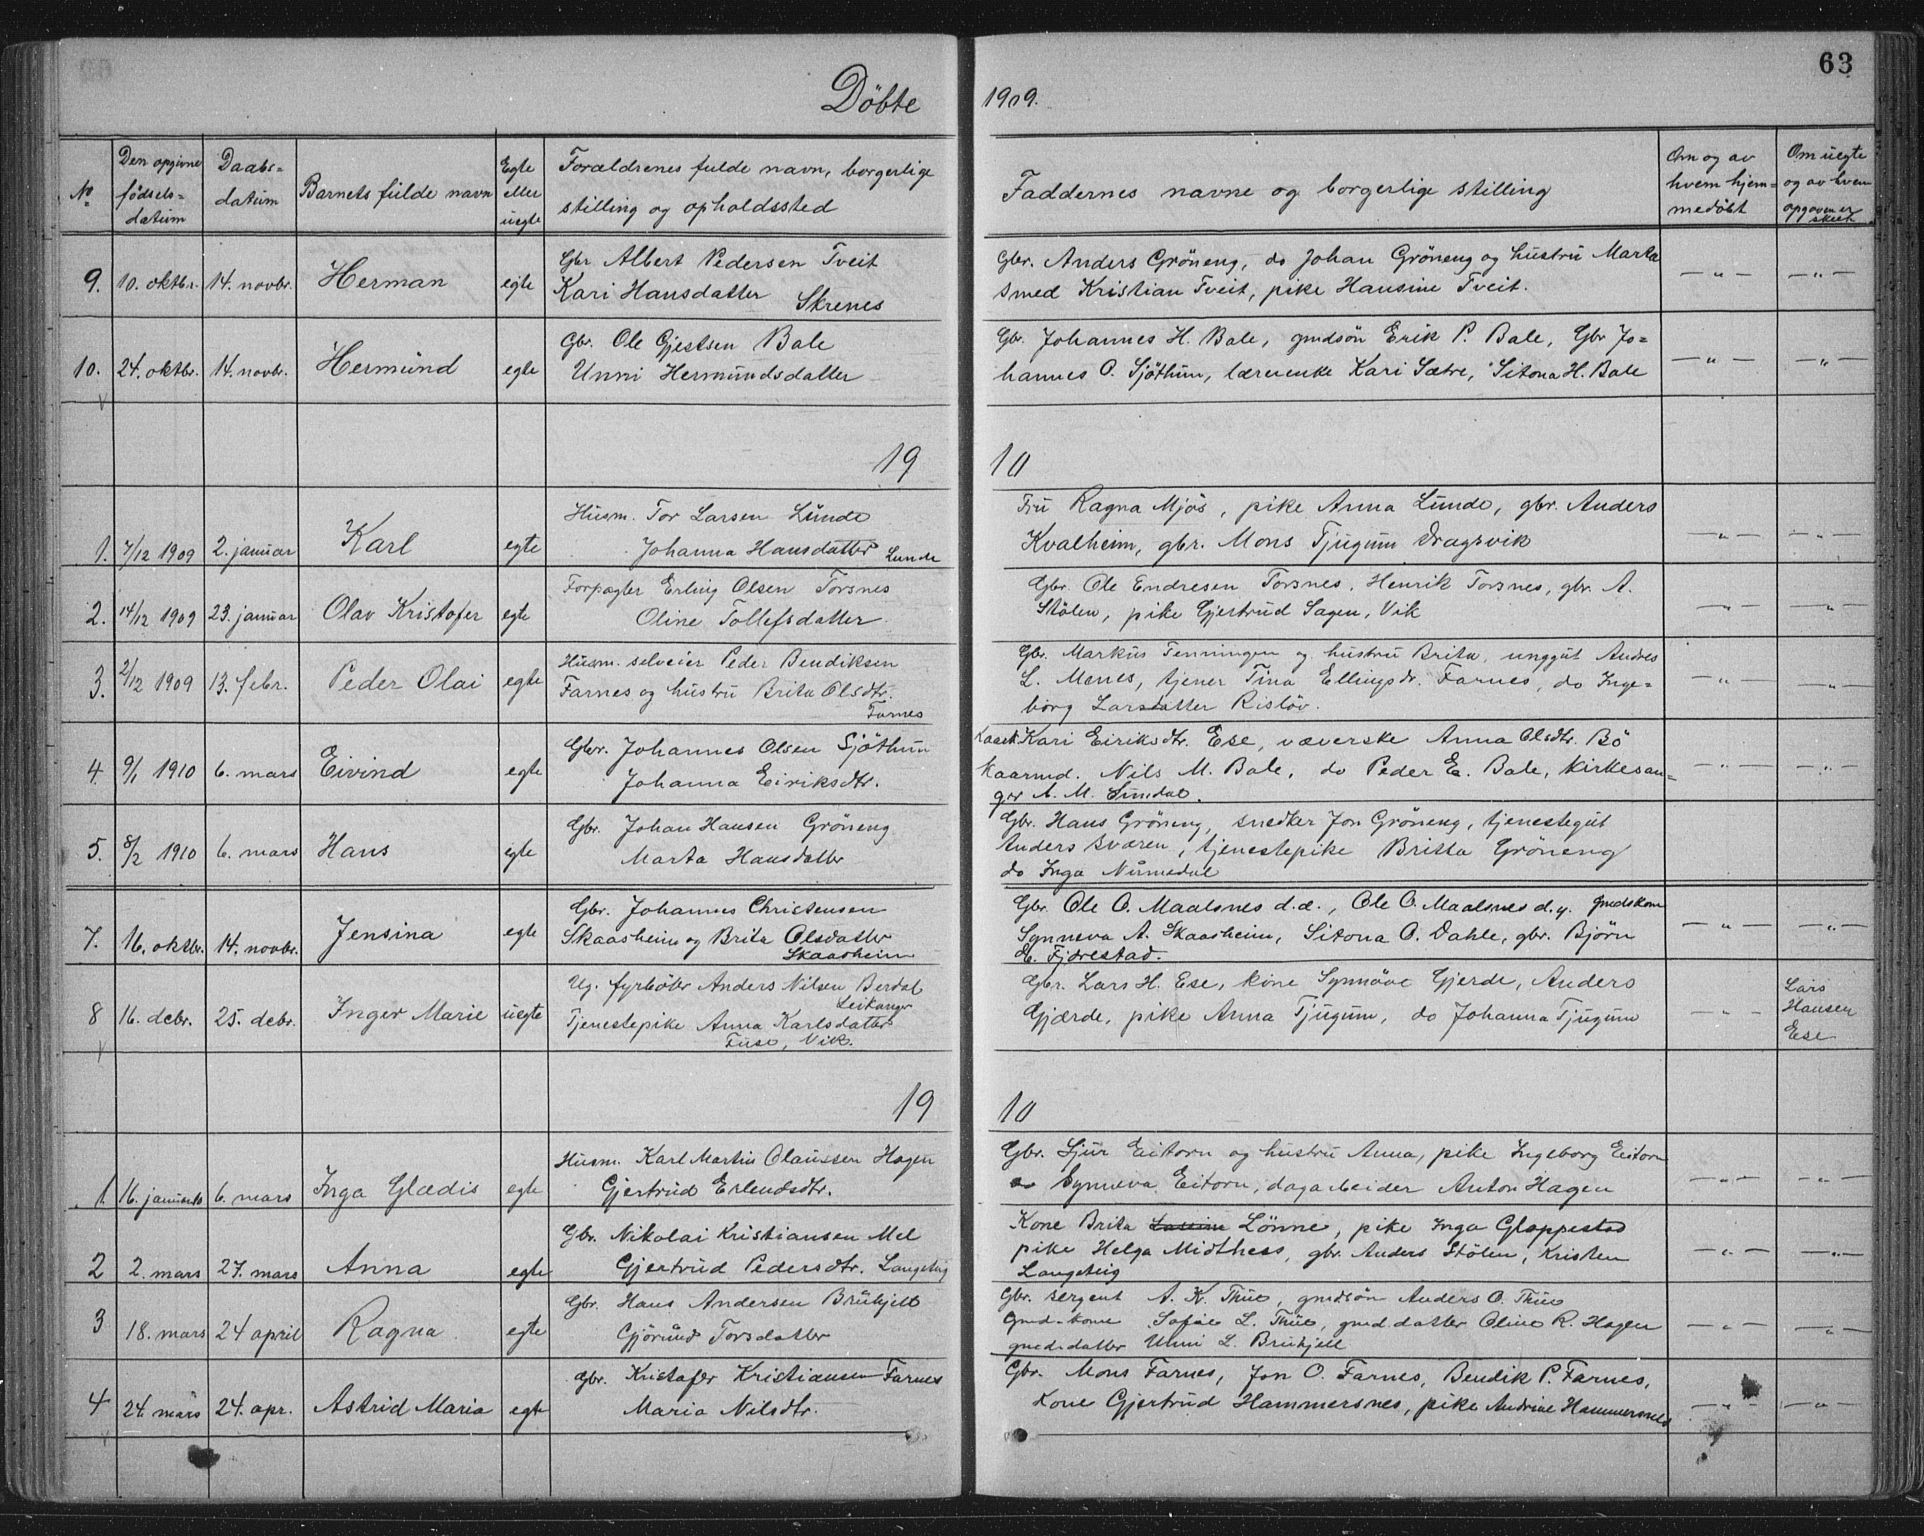 63
Döbte 1909.
No
Den opgivne fødsels= datum
Daabs= datum
Barnets fulde navn
Egte eller uegte
Forældrenes fulde navn, borgerlige stilling og opholdssted
Faddernes navne og borgerlige stilling
Om og av hvem hjem= medöbt
Om uegte og av hvem opgaven er skeet
9. 10. oktbr. 14. novbr. Herman egte
Gbr Albert Pedersen Tveit
Kari Hansdatter Skrenes
Gbr. Anders Gröneng, do Johan Gröneng og hustru Marta
smed Kristian Tveit, pike Hansine Tveit.
— " — — " —
10. 24. oktbr. 14. novbr. Hermund egte
Gbr. Ole Gjestsen Bale
Unni Hermundsdatter
Gbr. Johannes H. Bale, gmdsön Erik P. Bale, Gbr Jo=
hannes O. Sjöthun, lærerenke Kari Sætre, Sitona H. Bale
— " — — " —
19 10
1. 7/12 1909 2. januar Karl egte
Husm. Tor Larsen Lunde
Johanna Hansdatter Lunde
Fru Ragna Mjös, pike Anna Lunde, gbr. Anders
Kvalheim, gbr. Mons Tjugum Dragsvik
— " — — " —
2. 14/12 1909 23. januar Olav Kristofer egte
Forpagter Erling Olsen Torsnes
Oline Tollefsdatter
Gbr. Ole Endresen Torsnes, Henrik Torsnes, gbr. A.
Stölen, pike Gjertrud Sagen, Vik
— " — — " —
3. 2/12 1909 13. febr. Peder Olai egte
Husm. selveier Peder Bendiksen
Farnes og hustru Brita Olsdtr.
Farnes
Gbr. Markus Tenningen og hustru Brita, unggut Andres
L. Menes, tjener Tina Ellingsdr. Farnes, do Inge=
borg Larsdatter Rislöv.
— " — — " —
4. 9/1 1910 6. mars Eivind egte
Gbr. Johannes Olsen Sjöthun
Johanna Eiriksdtr.
Kari Eiriksdtr. Ese, væverske Anna Olsdtr. Bö
kaarmd. Nils M. Bale, do Peder E. Bale, kirkesan=
ger A. M. Sundal.
— " — — " —
5. 8/2 1910 6. mars Hans egte
Gbr. Johan Hansen Gröneng
Marta Hansdatter
Gbr. Hans Gröneng, snedker Jon Gröneng, tjenestegut
Anders Sværen, tjenestepike Britta Gröneng
do Inga Numedal
7. 16. oktbr. 14. novbr. Jensina egte
Gbr. Johannes Christensen
Skaasheim og Brita Olsdatter
Skaasheim
Gbr. Ole O. Maalsnes d.æ., Ole O. Maalsnes d.y. gmdskone
Synneva A. Skaasheim, Sitona O. Dahle, gbr. Björn
H. Fjærestad.
— " — — " —
8 16. debr. 25. debr. Inger Marie uegte
Ug. fyrböter Anders Nilsen Berdal
Leikanger
Tjenestepike Anna Karlsdatter
Tuse, Vik.
Gbr. Lars H. Ese, kone Synnöve Gjerde, Anders
Gjærde, pike Anna Tjugum, do Johanna Tjugum
— " —
Lars
Hansen
Ese
19 10
1. 16. januar 6. mars Inga Glædis egte
Husm. Karl Martin Olaussen Hagen
Gjertrud Erlendsdtr.
Gbr. Sjur Eitorn og hustru Anna, pike Ingeborg Eitorn
do Synneva Eitorn, dagarbeider Anton Hagen
— " — — " —
2 2. mars 27. mars Anna egte
Gbr. Nikolai Kristiansen Mel
Gjertrud Pedersdtr. Langeteig
Kone Brita Lönne, pike Inga Gloppestad
pike Helga Midthess, gbr. Anders Stölen, Kristen
Langeteig
— " — — " —
3 18. mars 24 april Ragna egte
Gbr. Hans Andersen Brühjell
Gjörund Torsdatter
Gbr. sergent A. K. Thue, gmdsön Anders O. Thue
Gmd-kone Sofie L. Thue, gmd.datter Oline R. Hagen
gmdsdatter Unni L. Brühjell
— " — — " —
4 24. mars 24. apr. Astrid Maria egte
Gbr. Kristofer Kristiansen Farnes
Maria Nilsdtr.
Gbr. Mons Farnes, Jon O. Farnes, Bendik P. Farnes,
Kone Gjertrud Hammersnes, pike Andrine Hammersnes
— " — — " —